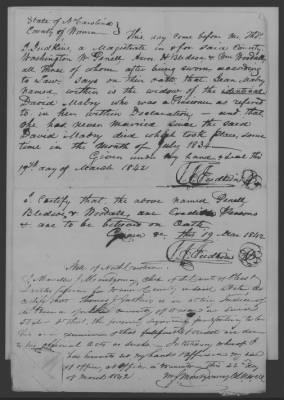 State of N Carolina }
County of Warren } This day came before me Tho. J.
Judkins, a Magistrate in & for said County
Washington W. H. Bledsoe & Wm Woodall
all three of whom after being sworn according
to Law, says on their oath that Jean Mabry
named within is the widow of the identical
David Mabry who was a Pensioner as referred
to, in her within Declaration, and that
she had never married since the said
David Mabry died which took place some
time in the month of July 1834
Given under my hand & seal this
19th day of March 1842
T. J. Judkins
I certify, that the above named
Bledsoe, & Woodall, are Credible Persons
& are to be believed on Oath
Given &c this 19 Mar 1842
T. J. Judkins
State of North Carolina
I Montgomery Clerk of the Court of Pleas &
Quarter Sessions for Warren County & said State do
certify that Thomas J Judkins is an acting Justice of
the Peace of the County of Warren in said
State & that the
his
his official acts as such. In testimony whereof I
have hereunto set my hand & affixed my seal
of office, at office in Warrenton this 22d day
of March 1842
Montgomery